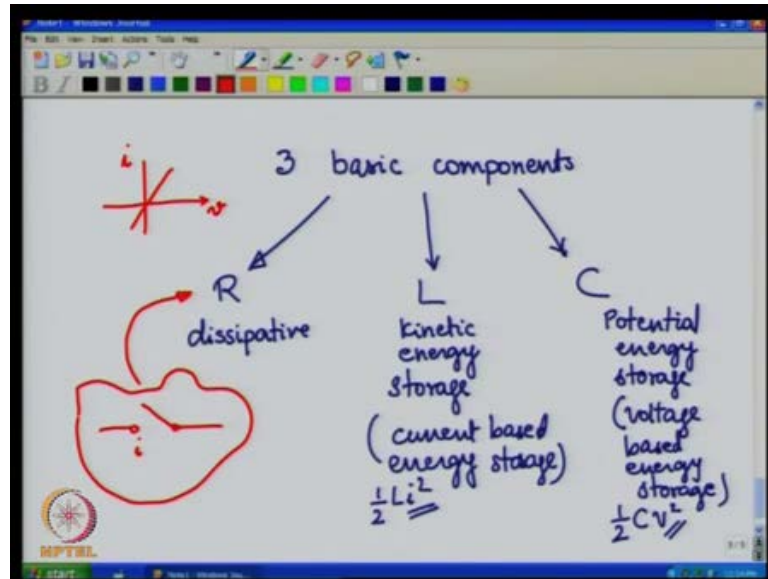 Note1 - Windows Journal
File Edit View Insert Actions Tools Help
B I
i
v
3 basic components
R
dissipative
L
kinetic
energy
storage
(current based
energy storage)
1/2 Li²
C
Potential
energy
storage
(voltage
based
energy
storage)
1/2 CV²
i
NPTEL
start
Note1 - Windows Jou...